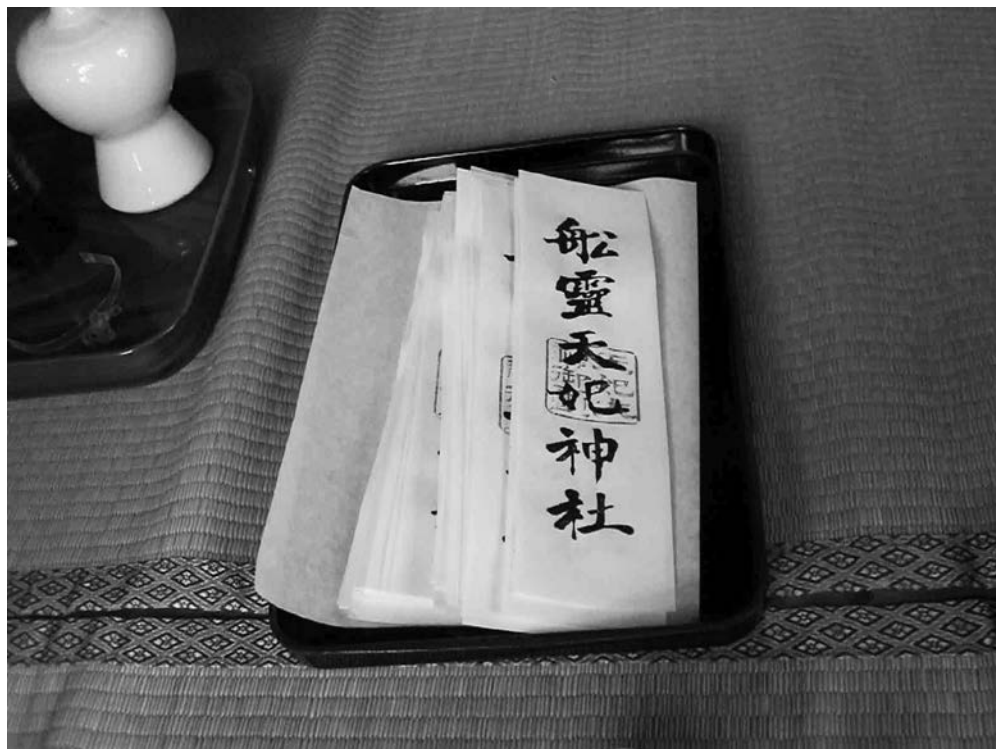 舩靈天妃神社